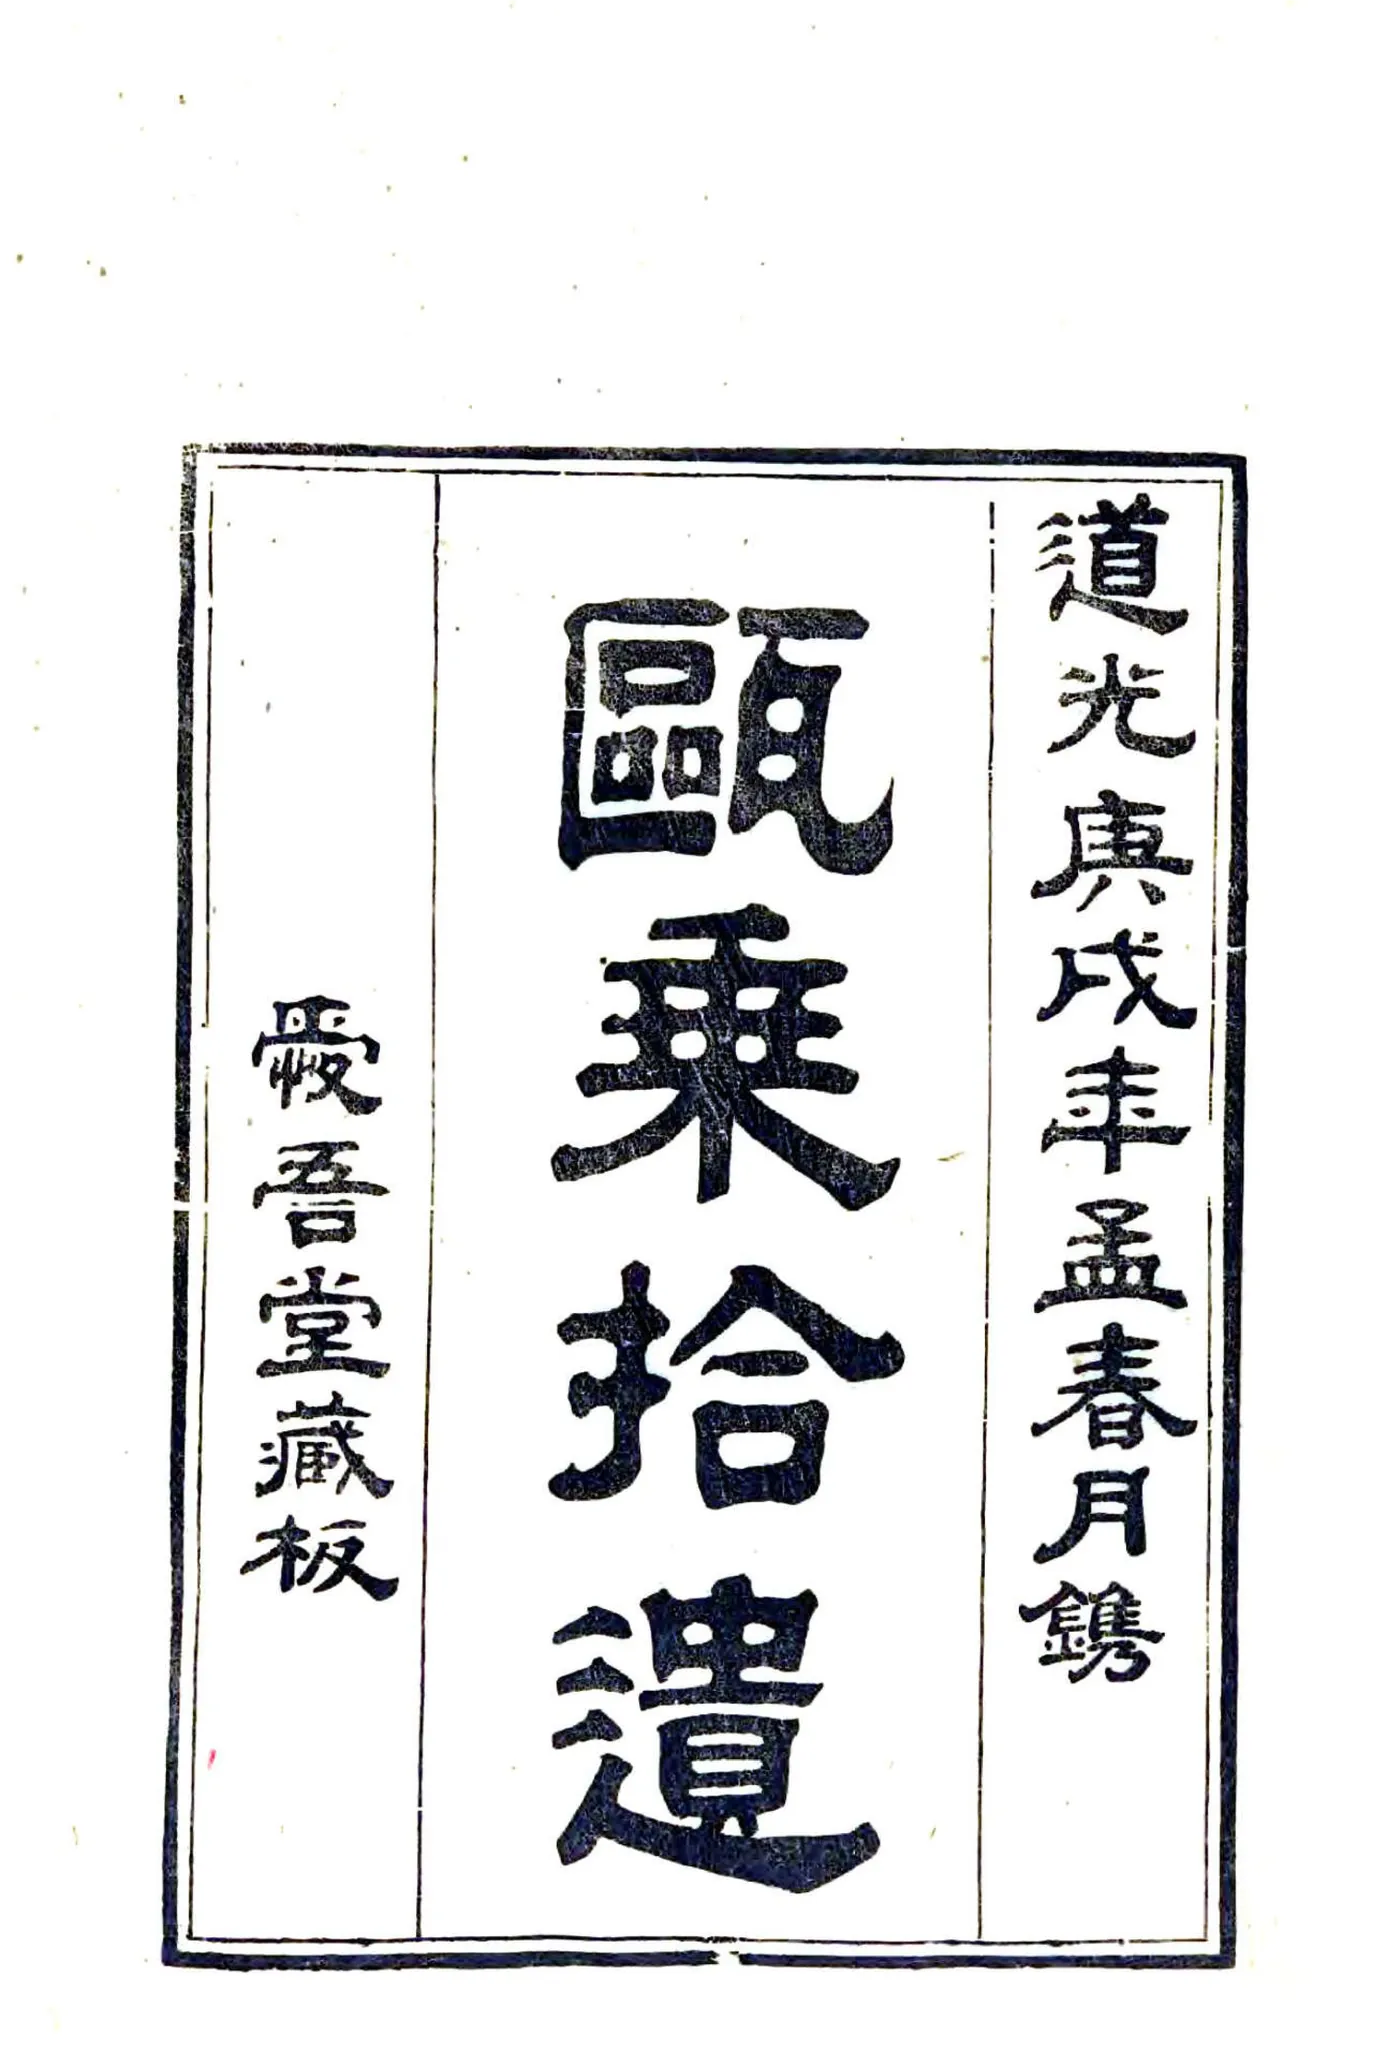 道光庚戌年孟春月鐫
甌乗拾遺
愛吾堂藏板